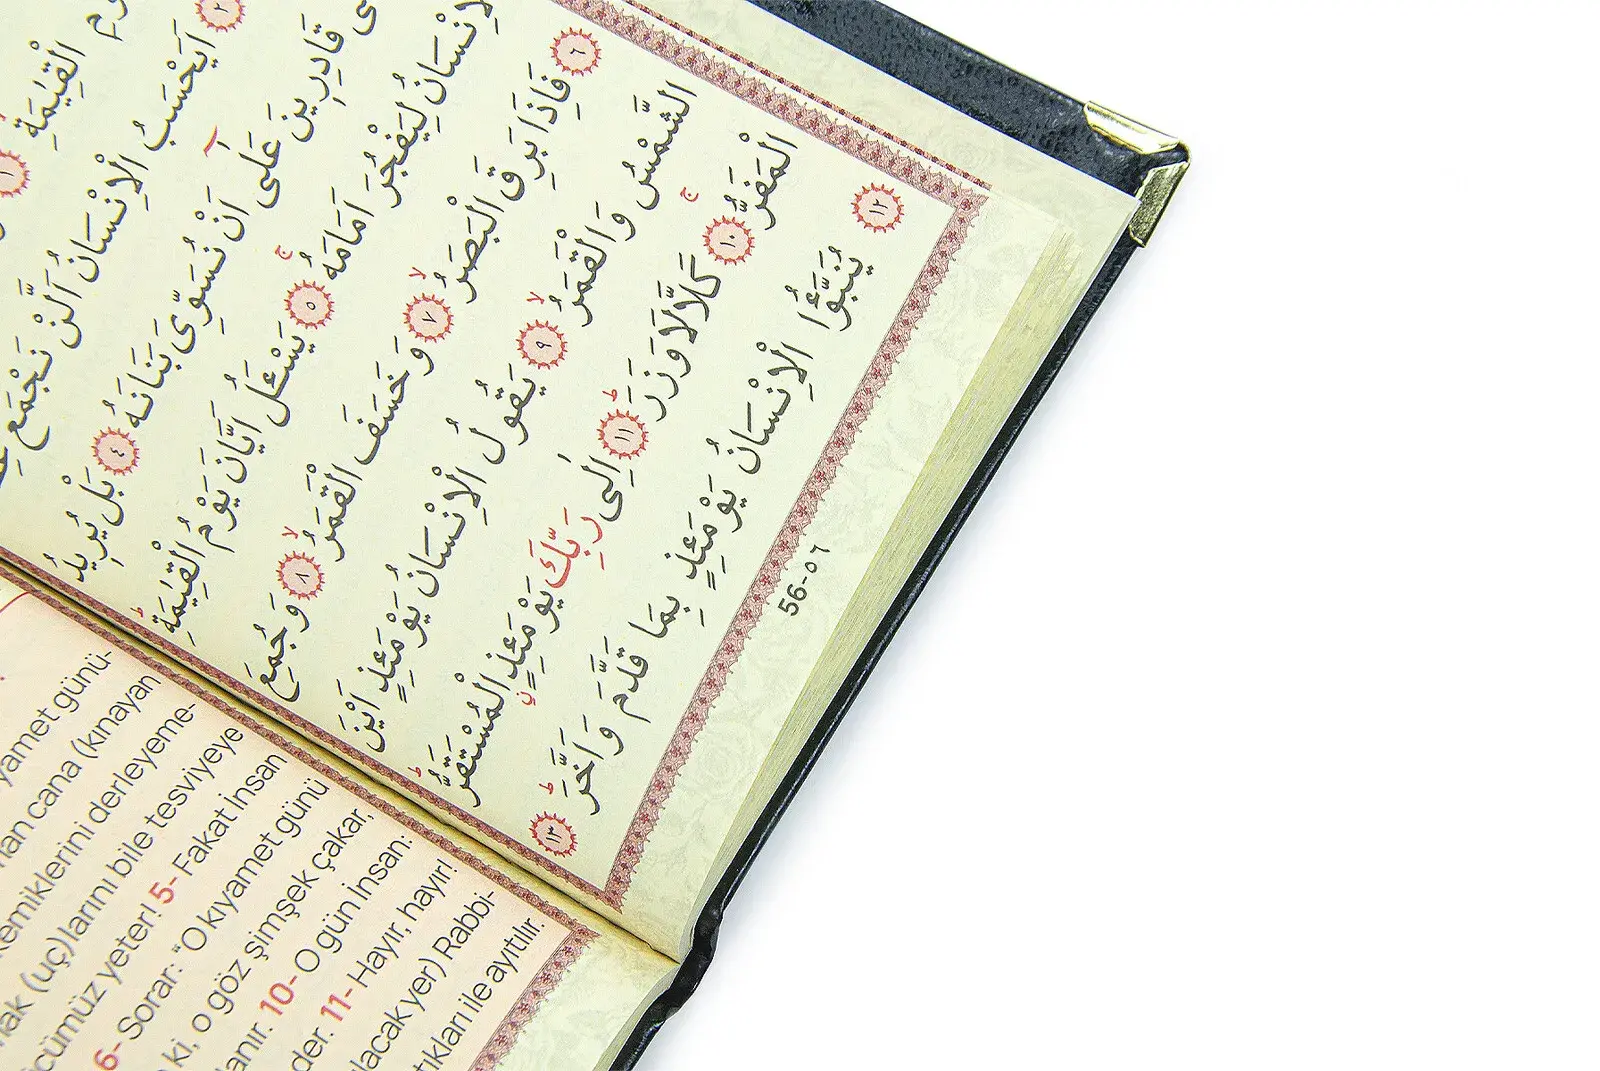 الْقِيٰمَةِ ١
٢ اَيَحْسَبُ الْاِنْسَانُ اَلَّنْ نَجْمَعَ
قَادِرِينَ عَلٰٓى اَنْ نُسَوِّىَ بَنَانَهُ ٤ بَلْ يُرِيدُ
الْاِنْسَانُ لِيَفْجُرَ اَمَامَهُ ٥ يَسْئَلُ اَيَّانَ يَوْمُ الْقِيٰمَةِ
٦ فَاِذَا بَرِقَ الْبَصَرُ ٧ وَخَسَفَ الْقَمَرُ ٨ وَجُمِعَ
الشَّمْسُ وَالْقَمَرُ ٩ يَقُولُ الْاِنْسَانُ يَوْمَئِذٍ اَيْنَ
الْمَفَرُّ ١٠ كَلَّا لَا وَزَرَ ١١ اِلٰى رَبِّكَ يَوْمَئِذٍ الْمُسْتَقَرُّ
١٢ يُنَبَّؤُا الْاِنْسَانُ يَوْمَئِذٍ بِمَا قَدَّمَ وَاَخَّرَ ١٣
56-٥٦
yamet günü-
cana (kınayan
kemiklerini derleyeme-
(uç)larını bile tesviyeye
cümüz yeter! 5- Fakat İnsan
6- Sorar: “O kıyamet günü
ki, o göz şimşek çakar,
lanır. 10- O gün İnsan:
der. 11- Hayır, hayır!
lacak yer) Rabbi-
tıkları ile ayıtılır.